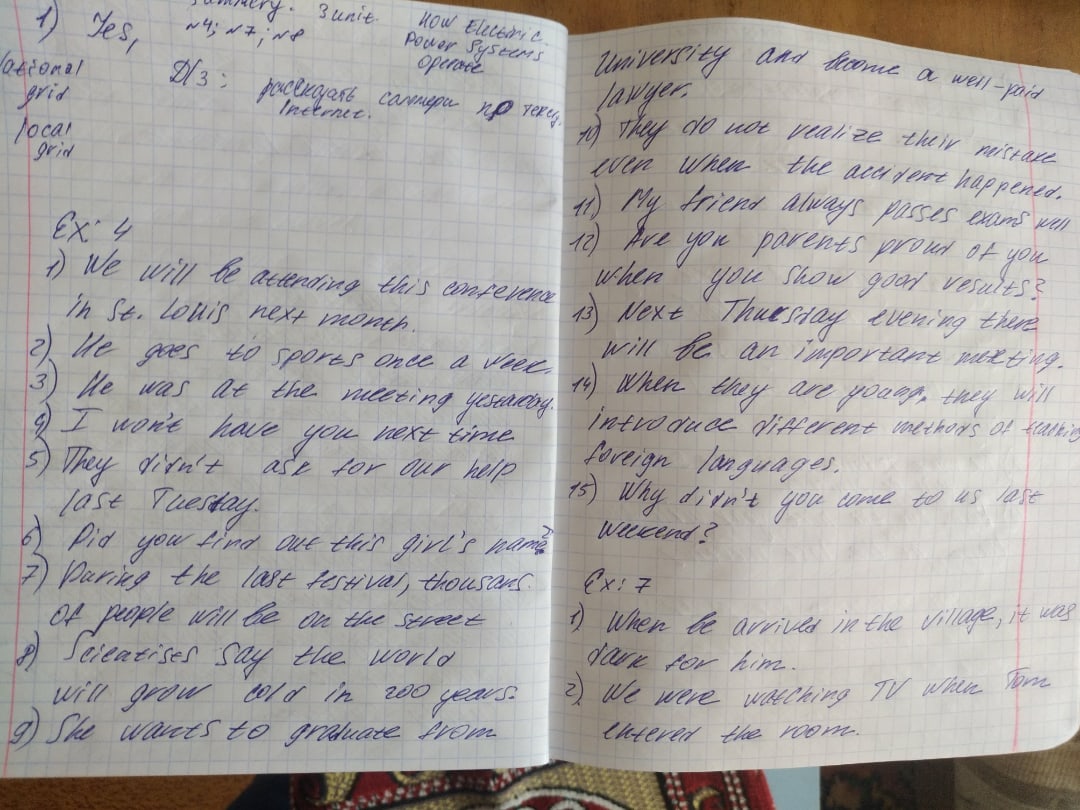 Summery. 3 unit.
1) Yes, n4; n7; n8
How Electric
Power Systems
operate
national
grid
Д/З: рассказать саммери пр текст.
Internet.
local
grid
Ex: 4
1) We will be attending this conference
in St. Louis next month.
2) He goes to sports once a week.
3) He was at the meeting yesterday.
4) I won't have you next time
5) They didn't ask for our help
last Tuesday.
6) Did you find out this girl's name?
7) During the last festival, thousans
of people will be on the street
8) Scientists say the world
will grow cold in 200 years.
9) She wants to graduate from
University and become a well-paid
lawyer.
10) They do not realize their mistake
even when the accident happened.
11) My friend always passes exams well
12) Are you parents proud of you
when you show good results?
13) Next Thursday evening there
will be an important meeting.
14) When they are young, they will
introduce different methods of teaching
foreign languages.
15) Why didn't you come to us last
weekend?
Ex: 7
1) When he arrived in the village, it was
dark for him.
2) We were watching TV when Tom
entered the room.